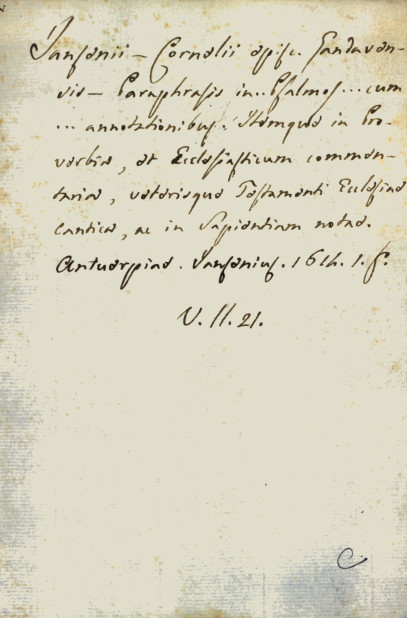 Jansenii – Cornelii episc. Gandaven-
sis – Paraphrasis in.. Psalmos... cum
... annotationibus. Itemque in Pro-
verbia, et Ecclesiasticum commen-
taria, veterisque Testamenti Ecclesiae
cantica, ac in Sapientiam notae.
Antuerpiae. Jansenius. 1614. 1. f.
V. 11. 21.
C